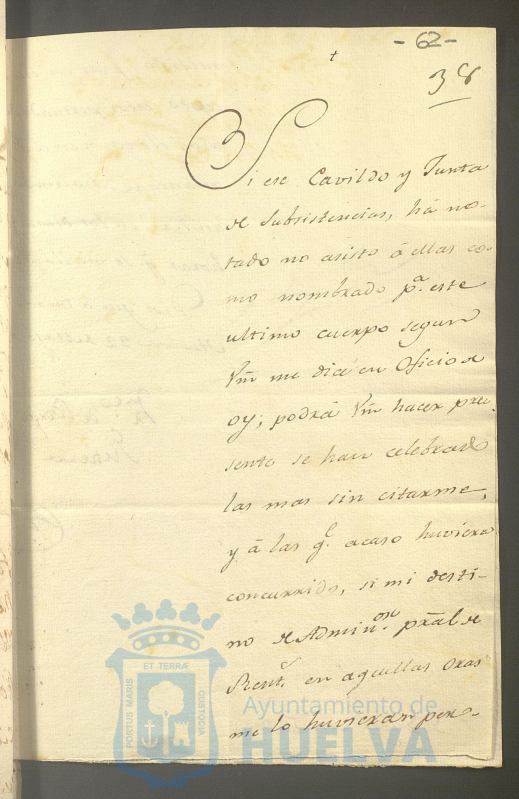 -62-
38
Si ese Cavildo y Junta
de Subsistencias, há no-
tado no asisto á ellas co-
mo nombrado pª. este
ultimo cuerpo segun
Vm me dice en Oficio de
oy; podrá Vm hacer pre-
sente se han celebrado
las mas sin citarme,
y á las qᵉ. acaso huviera
concurrido, si mi desti-
no de Adminᵒⁿ. pral. de
Rentˢ. en aquellas Oras
me lo huvieran per-
PORTUS MARIS ET TERRÆ CUSTODIA
Ayuntamiento de
HUELVA